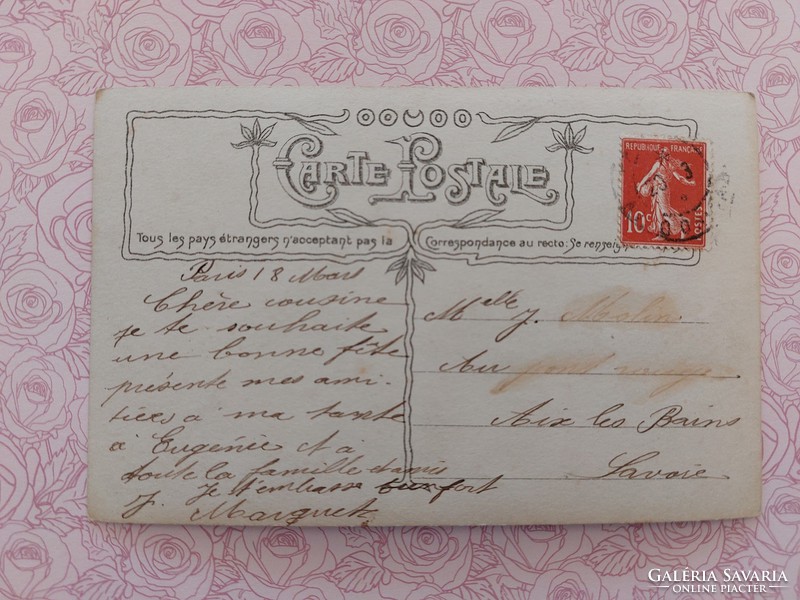 CARTE POSTALE
Tous les pays étrangers n'acceptent pas la Correspondance au recto: Se
REPUBLIQUE FRANÇAISE
10c
POSTES
Paris 18 Mars
Chère cousine
je te souhaite
une bonne fête
présente mes ami-
tiées à ma tante
à Eugénie et à
toute la famille
J. Je t'embrasse fort
Marguet
Melle J. Molin
Au pont rouge
Aix les Bains
Savoie
GALÉRIA SAVARIA
ONLINE PIACTÉR